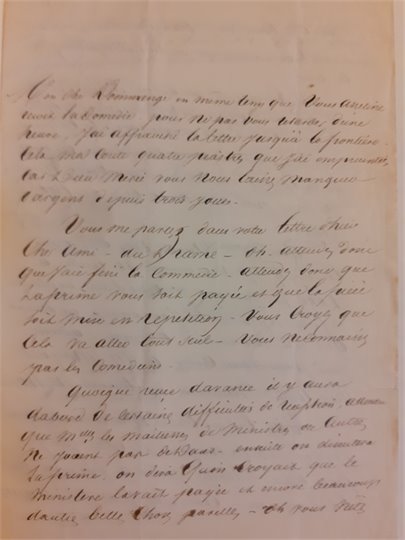 Mon cher Dommange en même tems que vous
reçu la Comédie pour ne pas vous retarder d'une
heure, J'ai affranchi la lettre jusqu'à la frontière
cela m'a couté quatre piastres que j'ai empruntées
car Dieu merci vous nous laissez manquer
d'argent depuis trois jours.
Vous me parlez dans votre lettre cher
cher ami - du Drame - oh attendez donc
que j'aie fini la Commedie - attendez donc que
la prime vous soit payée et que la pièce
soit mise en repetition - Vous croyez que
cela va aller tout seul - Vous ne connaissez
pas les Comediens.
Quoique reçue d'avance il y aura
d'abord de certaines difficultés de reception, attendu
que M les maitresses de Ministres ou autres
ne jouent pas dedans - ensuite on discutera
la prime, on dira qu'on croyait que le
Ministère l'avait payée et encore beaucoup
d'autres belles choses pareilles - oh vous